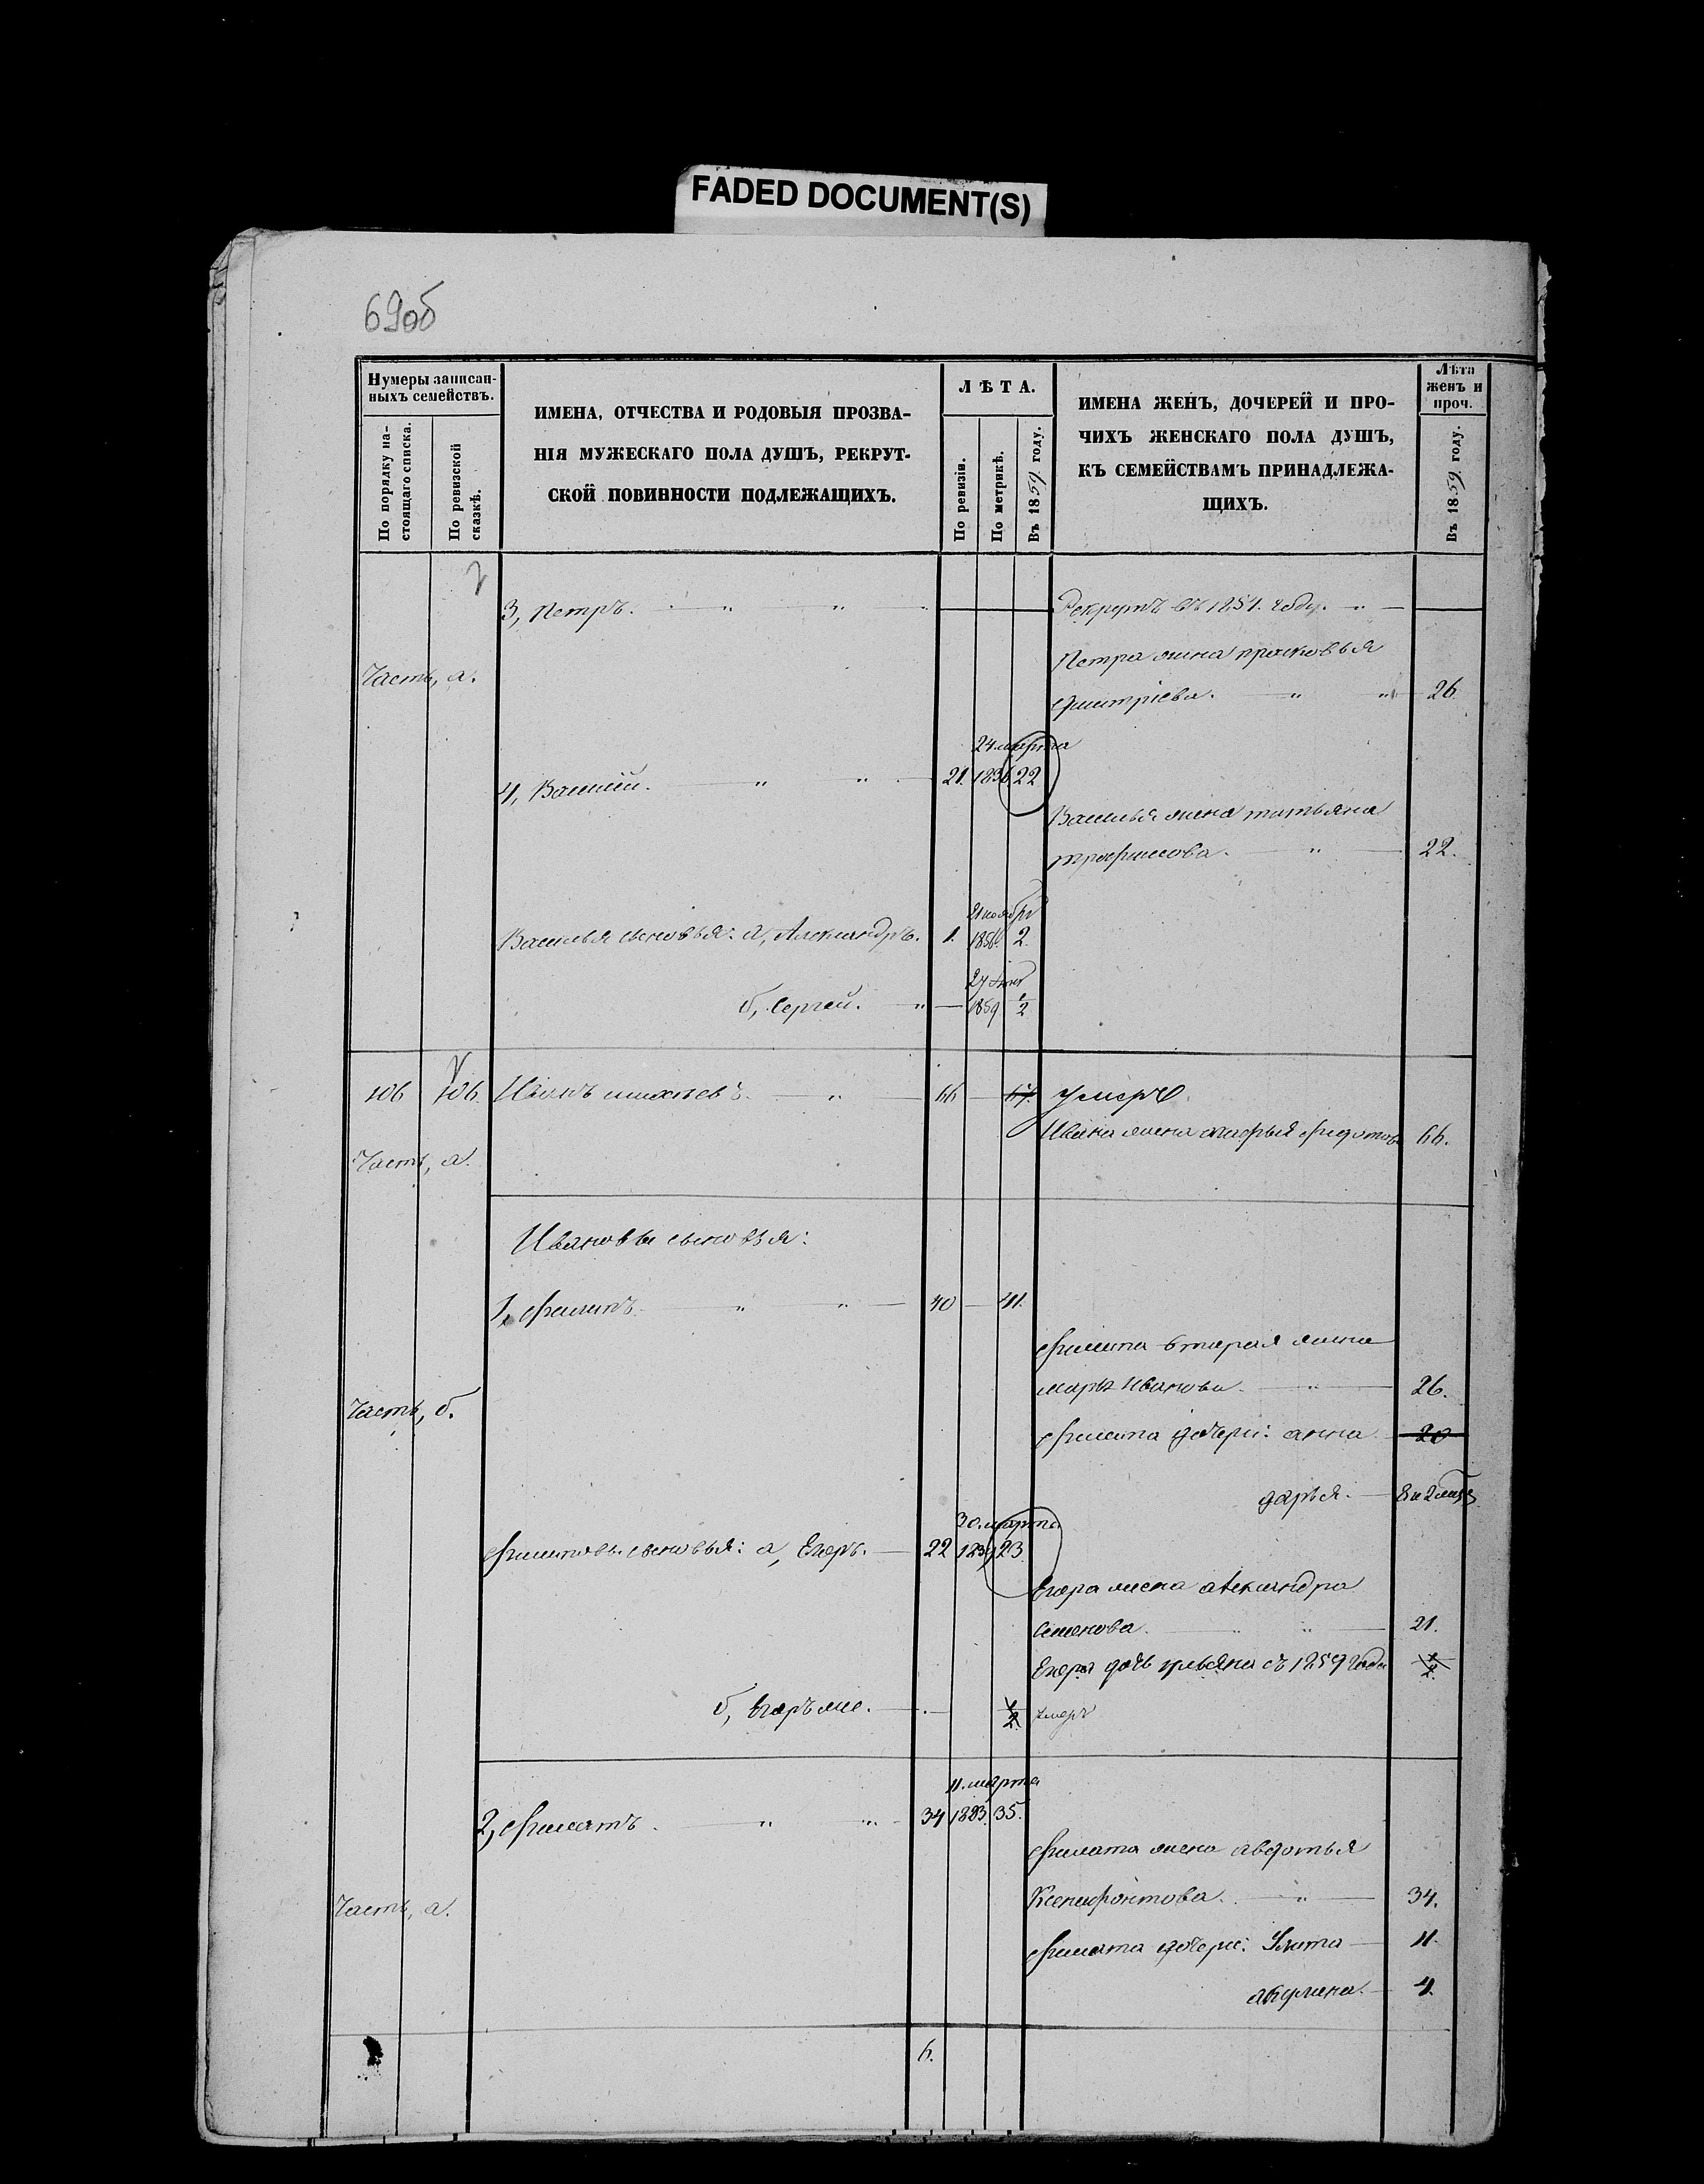 FADED DOCUMENT(S)
69об
Нумеры записан-
ныхъ семействъ.
По порядку на-
стоящаго списка.
По ревизской
сказкѣ.
ИМЕНА, ОТЧЕСТВА И РОДОВЫЯ ПРОЗВА-
НІЯ МУЖЕСКАГО ПОЛА ДУШЪ, РЕКРУТ-
СКОЙ ПОВИННОСТИ ПОДЛЕЖАЩИХЪ.
ЛѢТА.
По ревизіи.
По метрикѣ.
Въ 1859 году.
ИМЕНА ЖЕНЪ, ДОЧЕРЕЙ И ПРО-
ЧИХЪ ЖЕНСКАГО ПОЛА ДУШЪ,
КЪ СЕМЕЙСТВАМЪ ПРИНАДЛЕЖА-
ЩИХЪ.
Лѣта
женъ и
проч.
Въ 1859 году.
3, Петръ. " " Рекрутъ въ году. "
Петра жена прасковья
Часть, а.
дмитріева. " " 26.
24 марта
4, Василій. " " 21. 1836 22
Василья жена татьяна
трофимова. " 22.
21 ноября
Василья сыновья: а, Александръ. 1. 1856. 2.
27
б, Сергей. " 1859 1/2
106 106. Иванъ " 66 умеръ
Ивана жена марфья федотова 66.
Часть, а.
Ивановы сыновья:
1, филипъ " " 40 41.
филипа вторая жена
марья Иванова. " 26.
Часть, б.
филипа дочери: анна 20
дарья.
30 марта
филиповы сыновья: а, Егоръ. 22 23.
Егора жена александра
Семенова. " " 21.
Егора дочь ульяна съ 1859 года 1/2.
б, Егоръ же. 1/2. умеръ
11. марта
2, филатъ. " " 34 1823. 35.
филата жена авдотья
Ксенофонтова. " 34.
Часть, а.
филата дочери: Улита 11.
акулина. 4.
6.